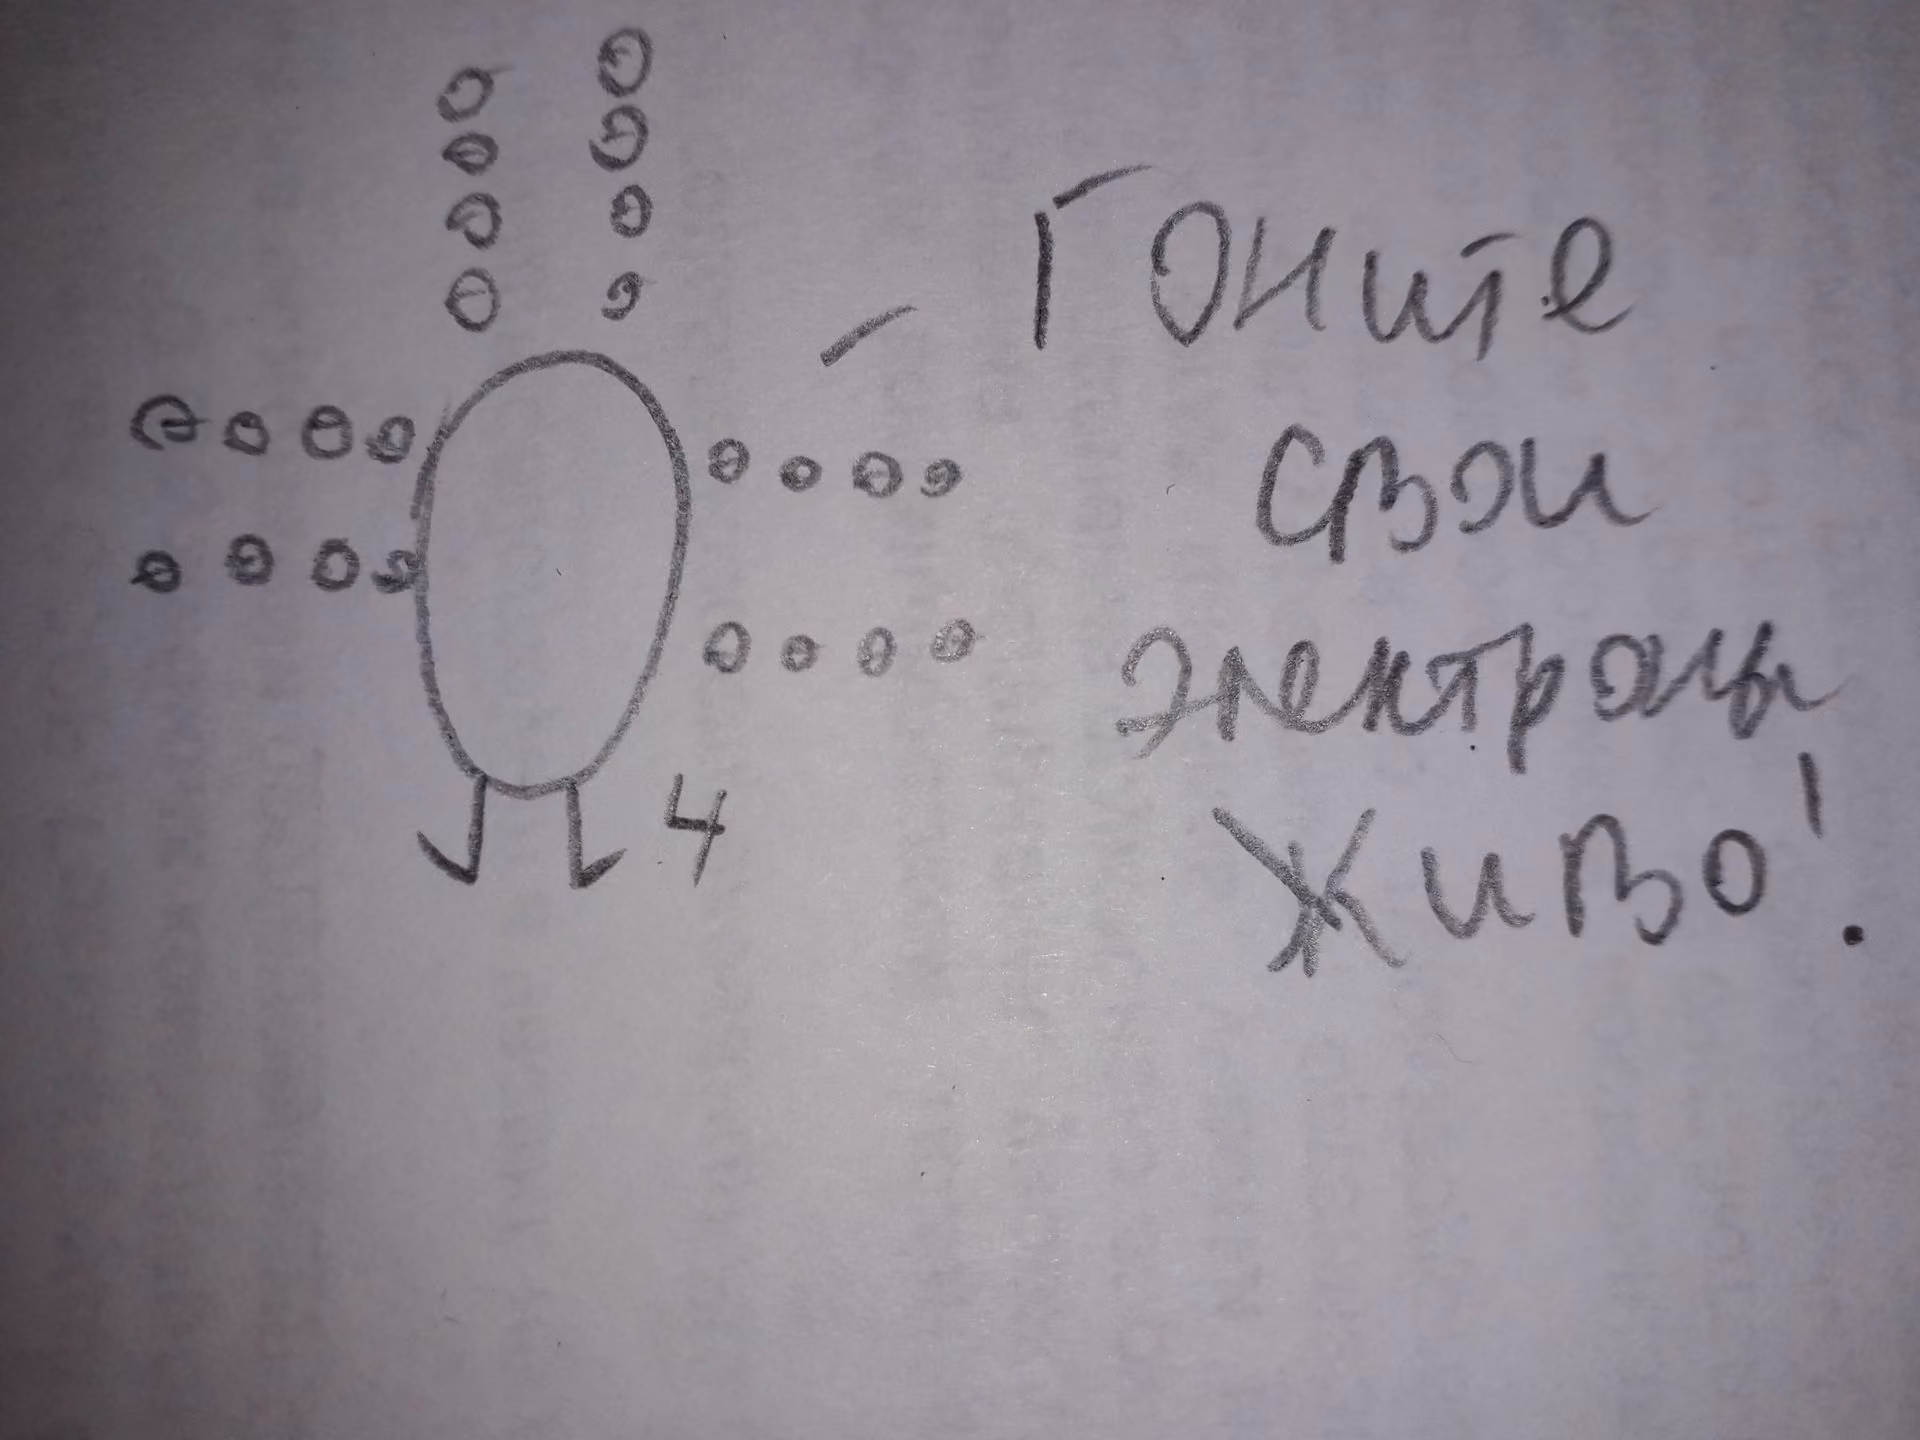 - Гоните
свои
электроны
живо!
4